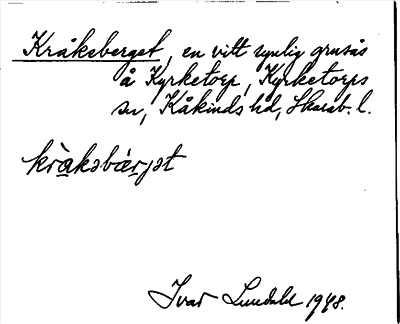 Kråksberget, en vitt synlig grusås
å Kyrketorp, Kyrketorps
sn, Kåkinds hd, Skarab. l.
kråksbärjet
Ivar Lundahl 1948.